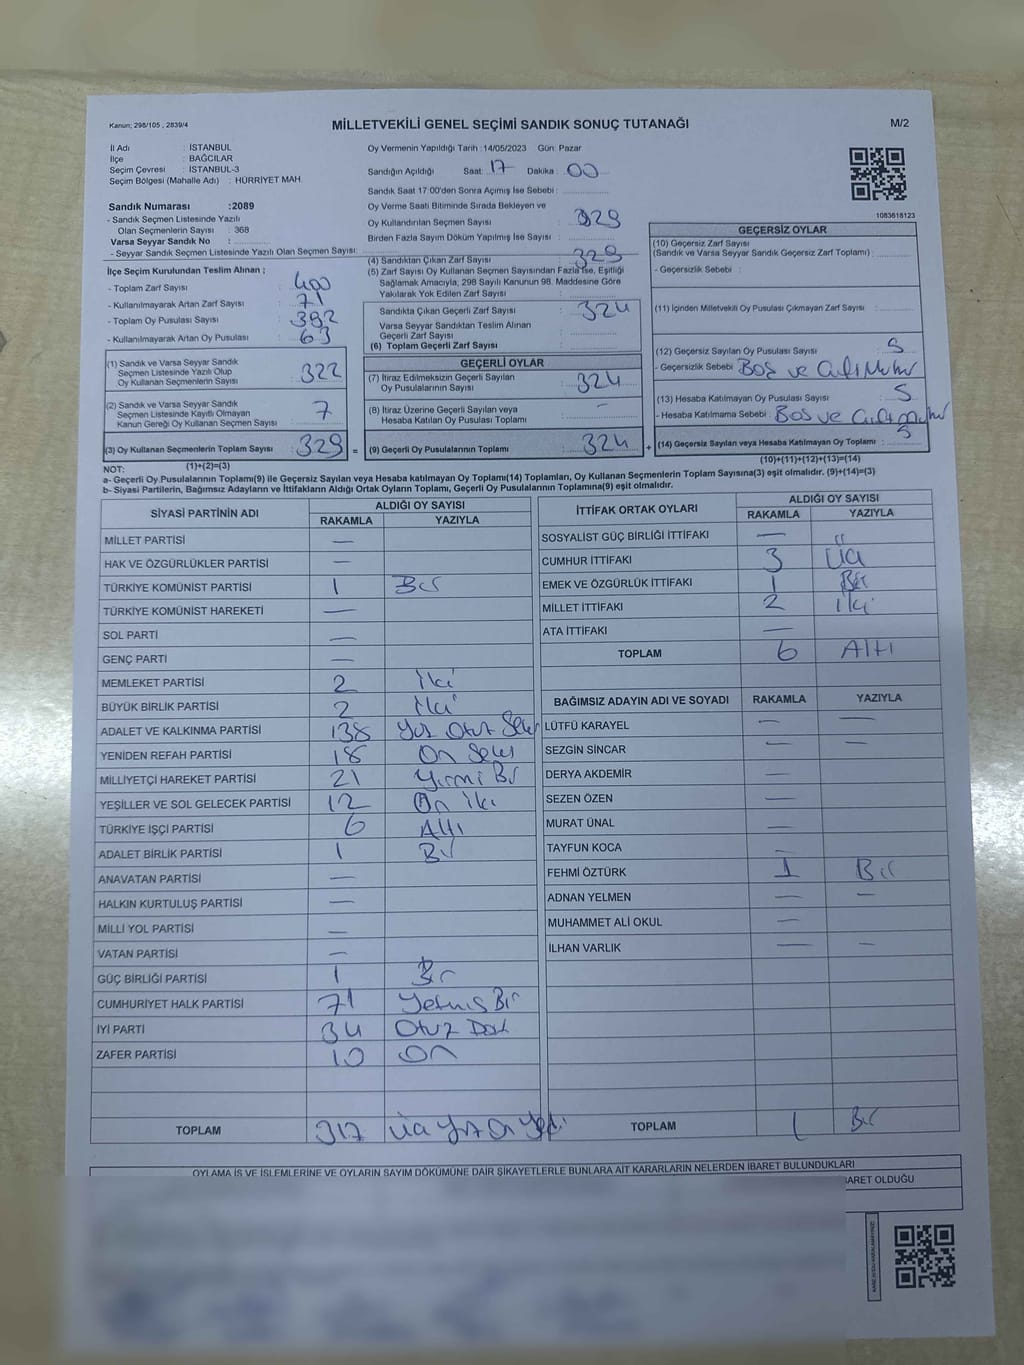 Kanun; 298/105 , 2839/4
MİLLETVEKİLİ GENEL SEÇİMİ SANDIK SONUÇ TUTANAĞI
M/2
İl Adı : İSTANBUL
İlçe : BAĞCILAR
Seçim Çevresi : İSTANBUL-3
Seçim Bölgesi (Mahalle Adı) : HÜRRİYET MAH.
Sandık Numarası :2089
- Sandık Seçmen Listesinde Yazılı
Olan Seçmenlerin Sayısı : 368
Varsa Seyyar Sandık No :
- Seyyar Sandık Seçmen Listesinde Yazılı Olan Seçmen Sayısı:
Oy Vermenin Yapıldığı Tarih : 14/05/2023 Gün: Pazar
Sandığın Açıldığı Saat: 17 Dakika : 00
Sandık Saat 17:00'den Sonra Açımış İse Sebebi :
Oy Verme Saati Bitiminde Sırada Bekleyen ve
Oy Kullandırılan Seçmen Sayısı : 329
Birden Fazla Sayım Döküm Yapılmış İse Sayısı :
1083618123
İlçe Seçim Kurulundan Teslim Alınan ;
- Toplam Zarf Sayısı : 400
- Kullanılmayarak Artan Zarf Sayısı : 71
- Toplam Oy Pusulası Sayısı : 392
- Kullanılmayarak Artan Oy Pusulası : 63
(1) Sandık ve Varsa Seyyar Sandık
Seçmen Listesinde Yazılı Olup
Oy Kullanan Seçmenlerin Sayısı : 322
(2) Sandık ve Varsa Seyyar Sandık
Seçmen Listesinde Kayıtlı Olmayan
Kanun Gereği Oy Kullanan Seçmen Sayısı : 7
(3) Oy Kullanan Seçmenlerin Toplam Sayısı : 329 =
(1)+(2)=(3)
(4) Sandıktan Çıkan Zarf Sayısı : 329
(5) Zarf Sayısı Oy Kullanan Seçmen Sayısından Fazla İse, Eşitliği
Sağlamak Amacıyla; 298 Sayılı Kanunun 98. Maddesine Göre
Yakılarak Yok Edilen Zarf Sayısı :
Sandıkta Çıkan Geçerli Zarf Sayısı : 324
Varsa Seyyar Sandıktan Teslim Alınan
Geçerli Zarf Sayısı :
(6) Toplam Geçerli Zarf Sayısı :
GEÇERLİ OYLAR
(7) İtiraz Edilmeksizin Geçerli Sayılan
Oy Pusulalarının Sayısı : 324
(8) İtiraz Üzerine Geçerli Sayılan veya
Hesaba Katılan Oy Pusulası Toplamı : -
(9) Geçerli Oy Pusulalarının Toplamı : 324 +
GEÇERSİZ OYLAR
(10) Geçersiz Zarf Sayısı
(Sandık ve Varsa Seyyar Sandık Geçersiz Zarf Toplamı) :
- Geçersizlik Sebebi :
(11) İçinden Milletvekili Oy Pusulası Çıkmayan Zarf Sayısı :
(12) Geçersiz Sayılan Oy Pusulası Sayısı : 5
- Geçersizlik Sebebi : Boş ve
(13) Hesaba Katılmayan Oy Pusulası Sayısı : 5
- Hesaba Katılmama Sebebi : Boş ve
(14) Geçersiz Sayılan veya Hesaba Katılmayan Oy Toplamı : 5
(10)+(11)+(12)+(13)=(14)
NOT:
a- Geçerli Oy Pusulalarının Toplamı(9) ile Geçersiz Sayılan veya Hesaba katılmayan Oy Toplamı(14) Toplamları, Oy Kullanan Seçmenlerin Toplam Sayısına(3) eşit olmalıdır. (9)+(14)=(3)
b- Siyasi Partilerin, Bağımsız Adayların ve İttifakların Aldığı Ortak Oyların Toplamı, Geçerli Oy Pusulalarının Toplamına(9) eşit olmalıdır.
SİYASİ PARTİNİN ADI
ALDIĞI OY SAYISI
RAKAMLA YAZIYLA
MİLLET PARTİSİ —
HAK VE ÖZGÜRLÜKLER PARTİSİ —
TÜRKİYE KOMÜNİST PARTİSİ 1 Bir
TÜRKİYE KOMÜNİST HAREKETİ —
SOL PARTİ —
GENÇ PARTİ —
MEMLEKET PARTİSİ 2 İki
BÜYÜK BİRLİK PARTİSİ 2 İki
ADALET VE KALKINMA PARTİSİ 138 Yüz Otuz Sekiz
YENİDEN REFAH PARTİSİ 18 On Sekiz
MİLLİYETÇİ HAREKET PARTİSİ 21 Yirmi Bir
YEŞİLLER VE SOL GELECEK PARTİSİ 12 On İki
TÜRKİYE İŞÇİ PARTİSİ 6 Altı
ADALET BİRLİK PARTİSİ 1 Bir
ANAVATAN PARTİSİ —
HALKIN KURTULUŞ PARTİSİ —
MİLLİ YOL PARTİSİ —
VATAN PARTİSİ —
GÜÇ BİRLİĞİ PARTİSİ 1 Bir
CUMHURİYET HALK PARTİSİ 71 Yetmiş Bir
İYİ PARTİ 34 Otuz Dört
ZAFER PARTİSİ 10 On
TOPLAM 317 Üç Yüz On Yedi
İTTİFAK ORTAK OYLARI
ALDIĞI OY SAYISI
RAKAMLA YAZIYLA
SOSYALİST GÜÇ BİRLİĞİ İTTİFAKI —
CUMHUR İTTİFAKI 3 Üç
EMEK VE ÖZGÜRLÜK İTTİFAKI 1 Bir
MİLLET İTTİFAKI 2 İki
ATA İTTİFAKI —
TOPLAM 6 Altı
BAĞIMSIZ ADAYIN ADI VE SOYADI RAKAMLA YAZIYLA
LÜTFÜ KARAYEL — —
SEZGİN SİNCAR — —
DERYA AKDEMİR —
SEZEN ÖZEN —
MURAT ÜNAL —
TAYFUN KOCA —
FEHMİ ÖZTÜRK 1 Bir
ADNAN YELMEN — —
MUHAMMET ALİ OKUL —
İLHAN VARLIK — —
TOPLAM 1 Bir
OYLAMA İŞ VE İŞLEMLERİNE VE OYLARIN SAYIM DÖKÜMÜNE DAİR ŞİKAYETLERLE BUNLARA AİT KARARLARIN NELERDEN İBARET BULUNDUKLARI
BARET OLDUĞU